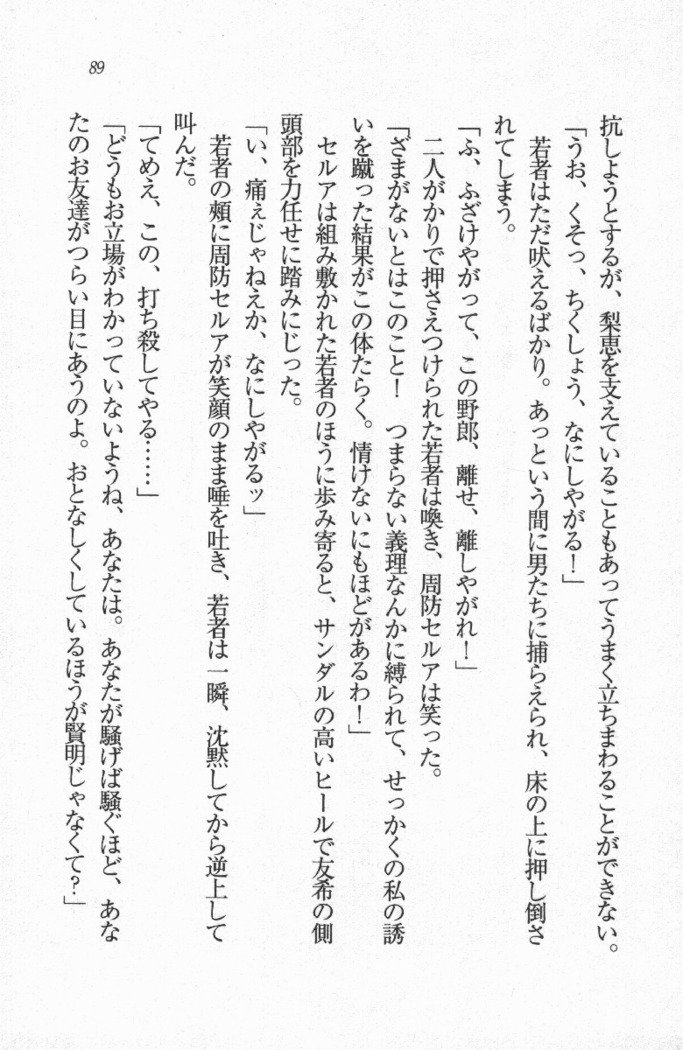 89
抗しようとするが、梨恵を支えていることもあってうまく立ちまわることができない。
「うお、くそっ、ちくしょう、なにしやがる！」
若者はただ吠えるばかり。あっという間に男たちに捕らえられ、床の上に押し倒さ
れてしまう。
「ふ、ふざけやがって、この野郎、離せ、離しやがれ！」
二人がかりで押さえつけられた若者は喚き、周防セルアは笑った。
「ざまがないとはこのこと！　つまらない義理なんかに縛られて、せっかくの私の誘
いを蹴った結果がこの体たらく。情けないにもほどがあるわ！」
セルアは組み敷かれた若者のほうに歩み寄ると、サンダルの高いヒールで友希の側
頭部を力任せに踏みにじった。
「い、痛ぇじゃねえか、なにしやがるッ」
若者の頰に周防セルアが笑顔のまま唾を吐き、若者は一瞬、沈黙してから逆上して
叫んだ。
「てめえ、この、打ち殺してやる……」
「どうもお立場がわかっていないようね、あなたは。あなたが騒げば騒ぐほど、あな
たのお友達がつらい目にあうのよ。おとなしくしているほうが賢明じゃなくて？」